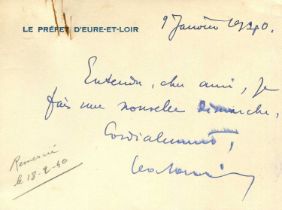 LE PRÉFET D'EURE-ET-LOIR
9 Janvier 1940.
Entendu, cher ami, je
fais une nouvelle démarche,
Cordialement,
Remercié
le 18-2-40